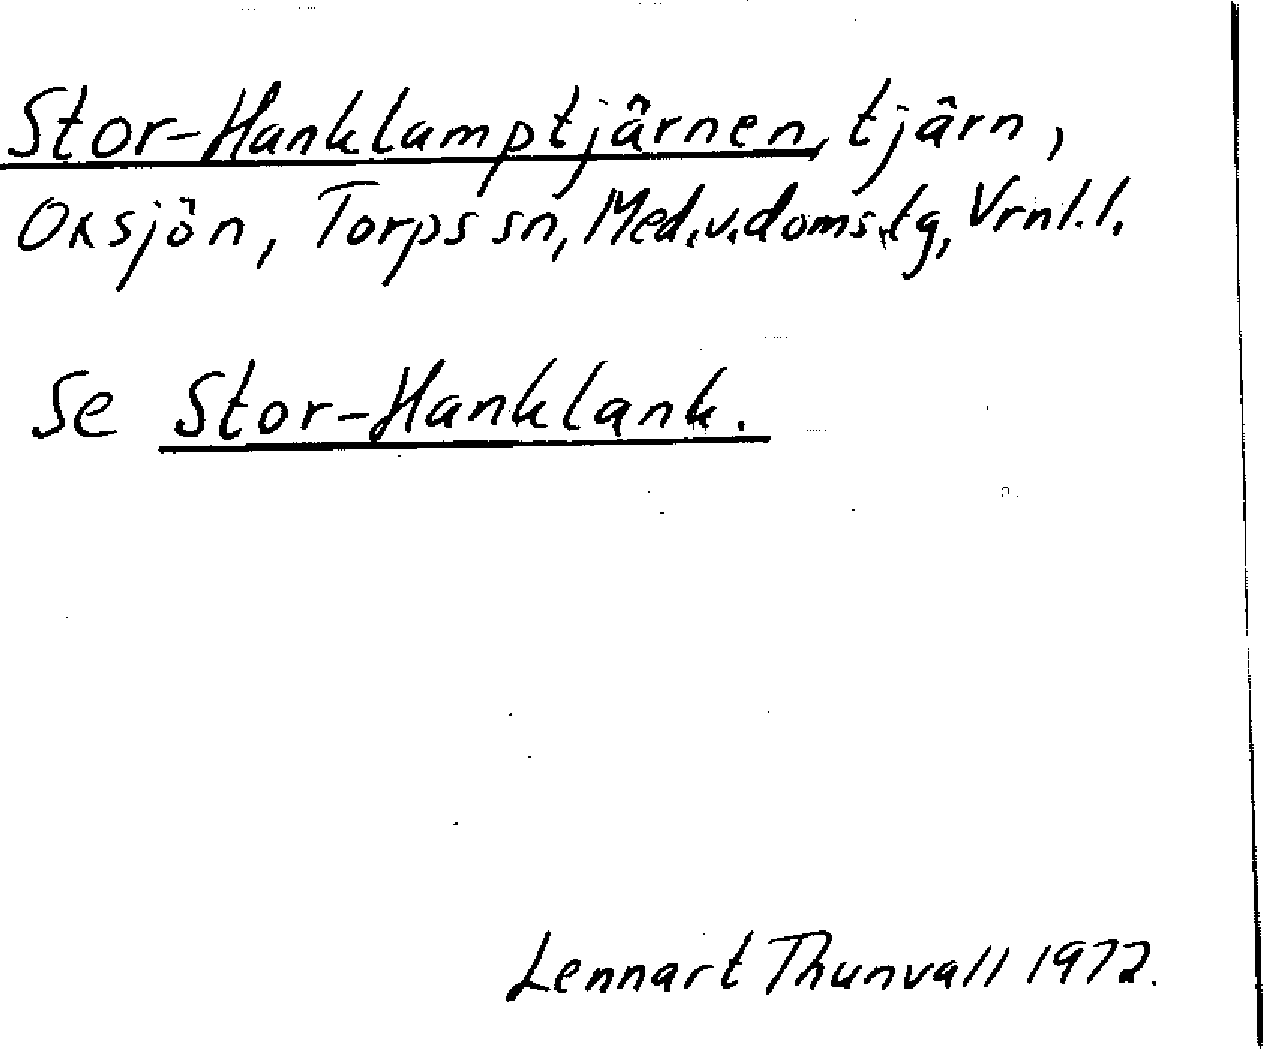 Stor-Hanklamptjärnen, tjärn,
Oxsjön, Torps sn, Med.v.doms.tg, Vrnl.l.
Se Stor-Hanklank.
Lennart Thunvall 1972.